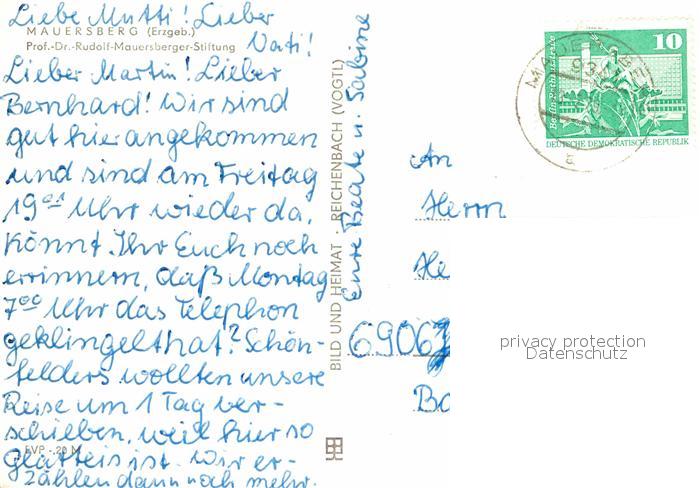 Liebe Mutti! Lieber
MAUERSBERG (Erzgeb.)
Prof.-Dr.-Rudolf-Mauersberger-Stiftung
Vati!
Lieber Martin! Lieber
Bernhard! Wir sind
gut hier angekommen
und sind am Freitag
19⁰¹ Uhr wieder da.
Könnt Ihr Euch noch
erinnern, daß Montag
7⁰⁰ Uhr das Telephon
geklingelt hat? Schön-
felders wollten unsere
Reise um 1 Tag ver-
schieben, weil hier so
EVP -,20 M
Glatteis ist. Wir er-
zählen dann noch mehr.
Eure Beate u. Sabine
BILD UND HEIMAT · REICHENBACH (VOGTL)
10
Berlin
DEUTSCHE DEMOKRATISCHE REPUBLIK
93
a
An
Herrn
He
6906
Bo
privacy protection
Datenschutz